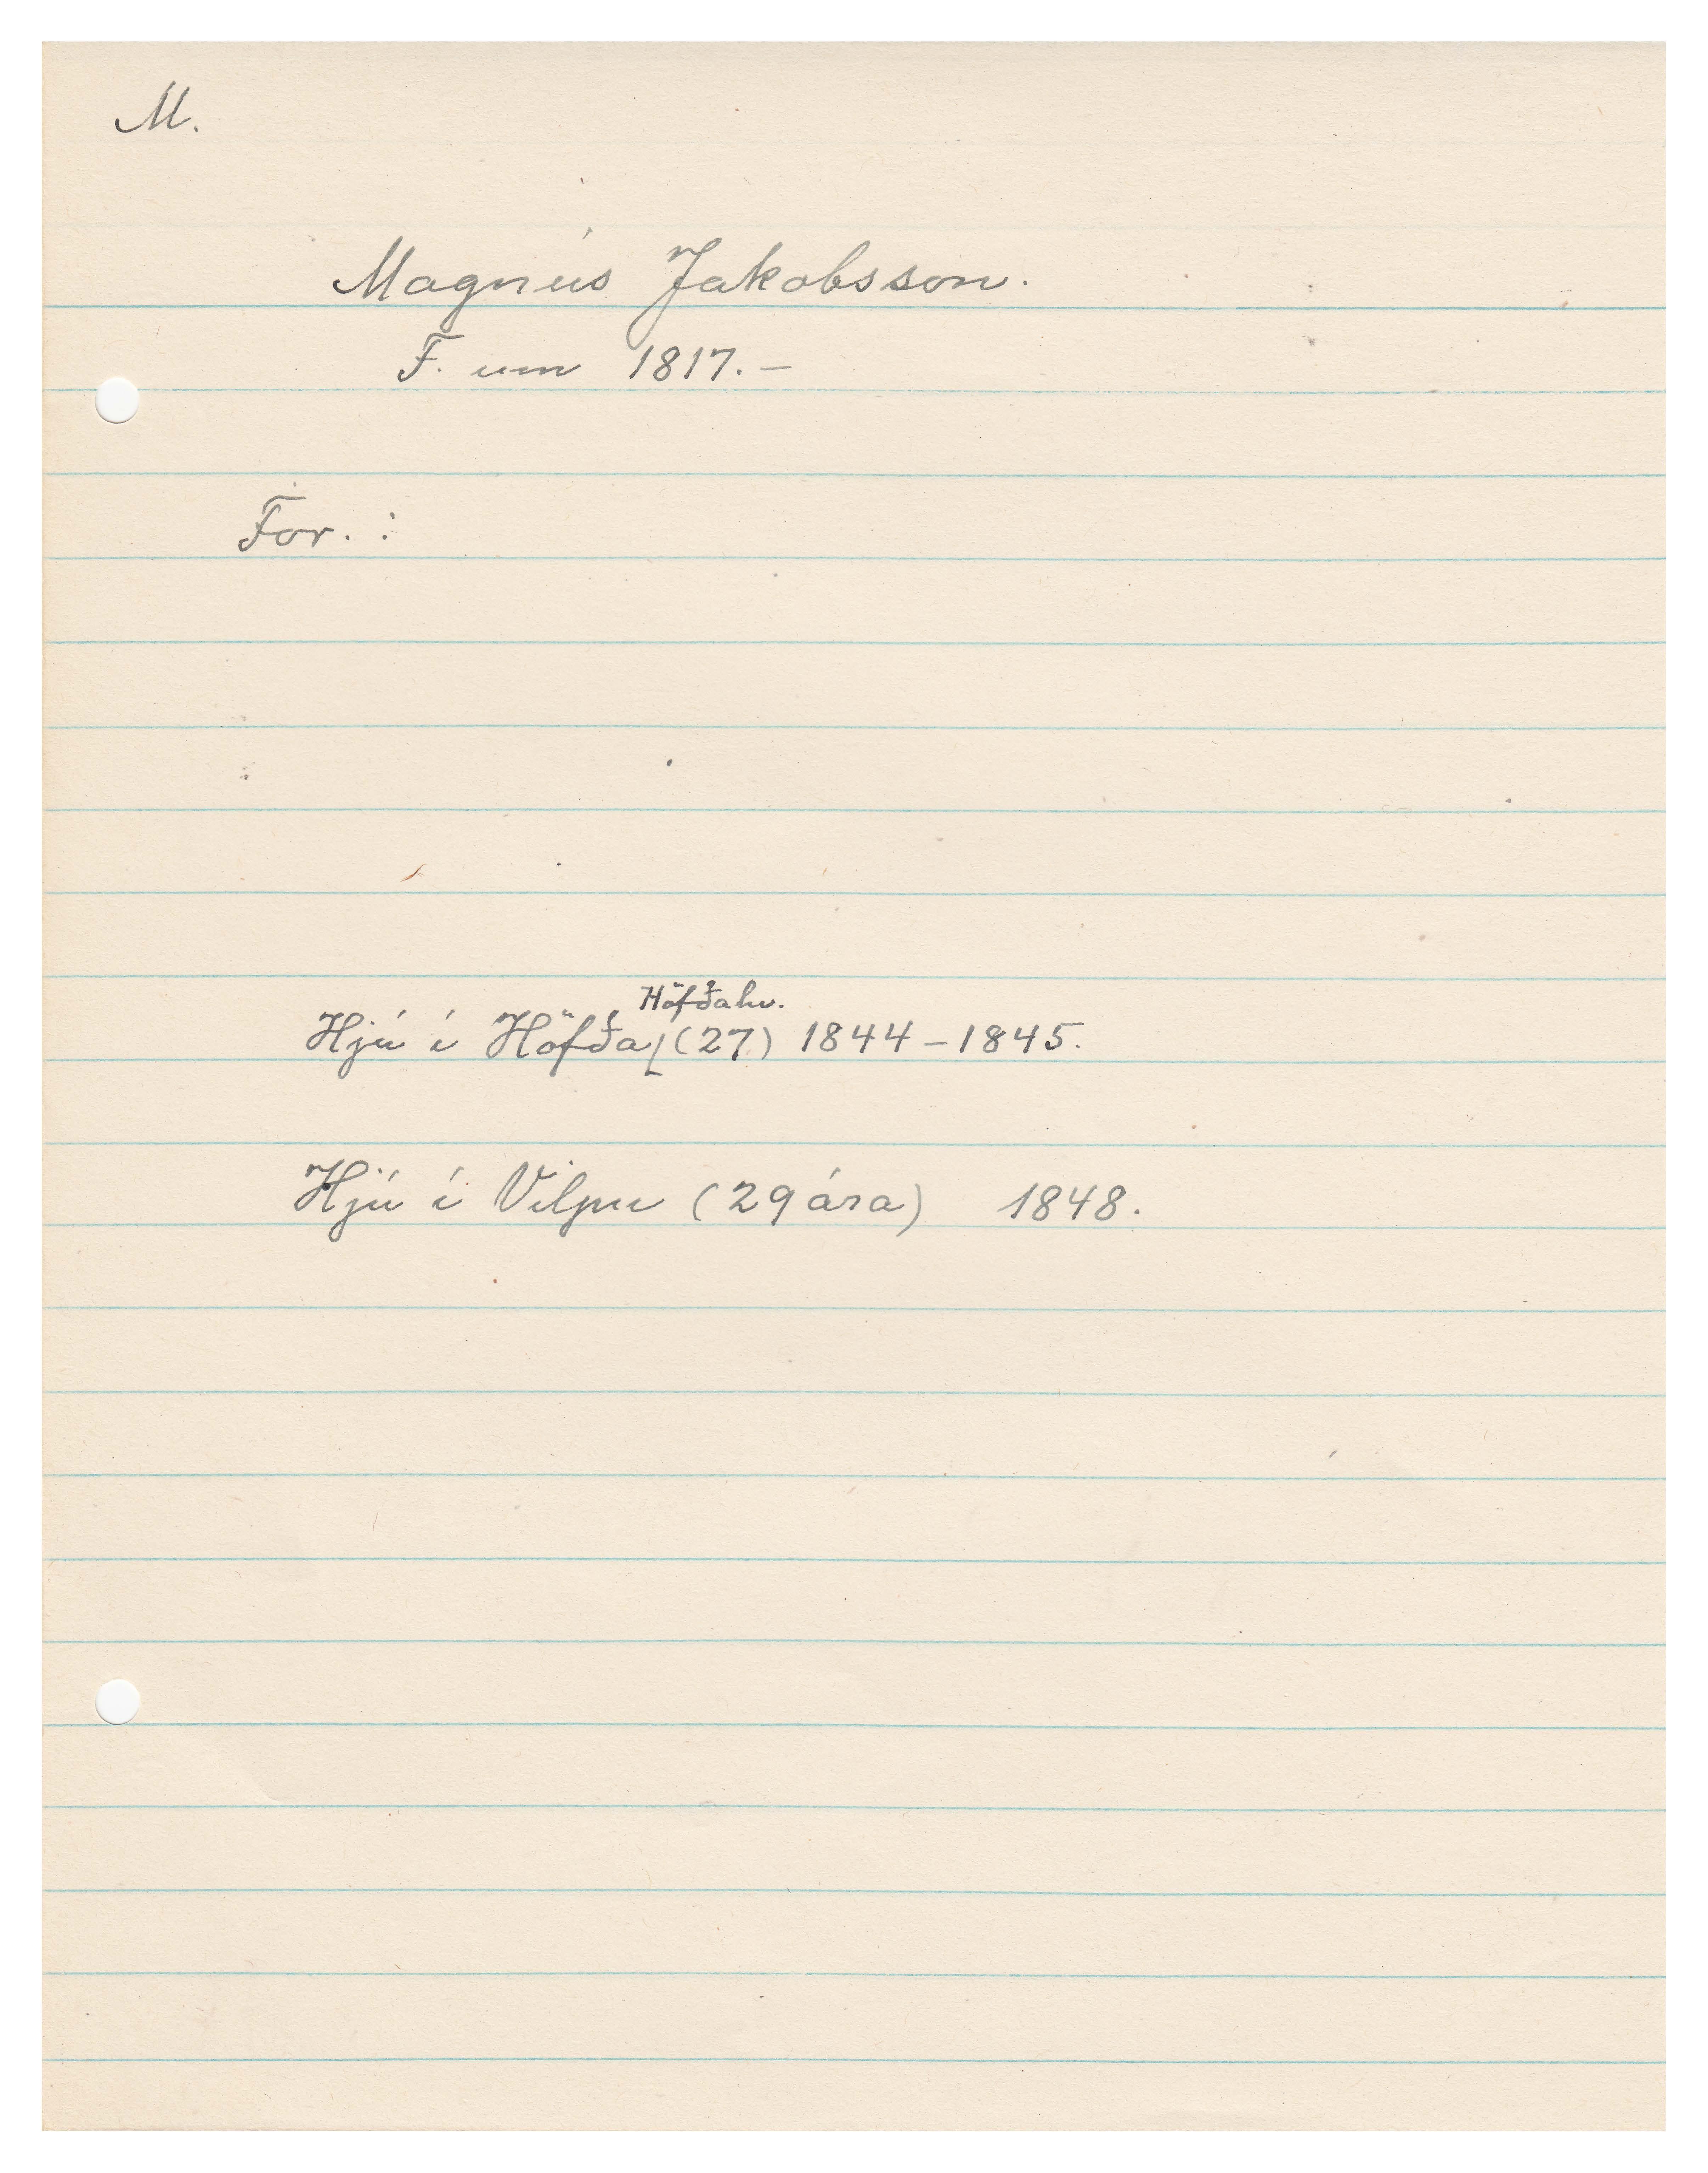 M.
Magnús Jakobsson.
F. um 1817. –
For. :
Höfðahv.
Hjú í Höfða (27) 1844 – 1845.
Hjú í Vilpu (29 ára) 1848.